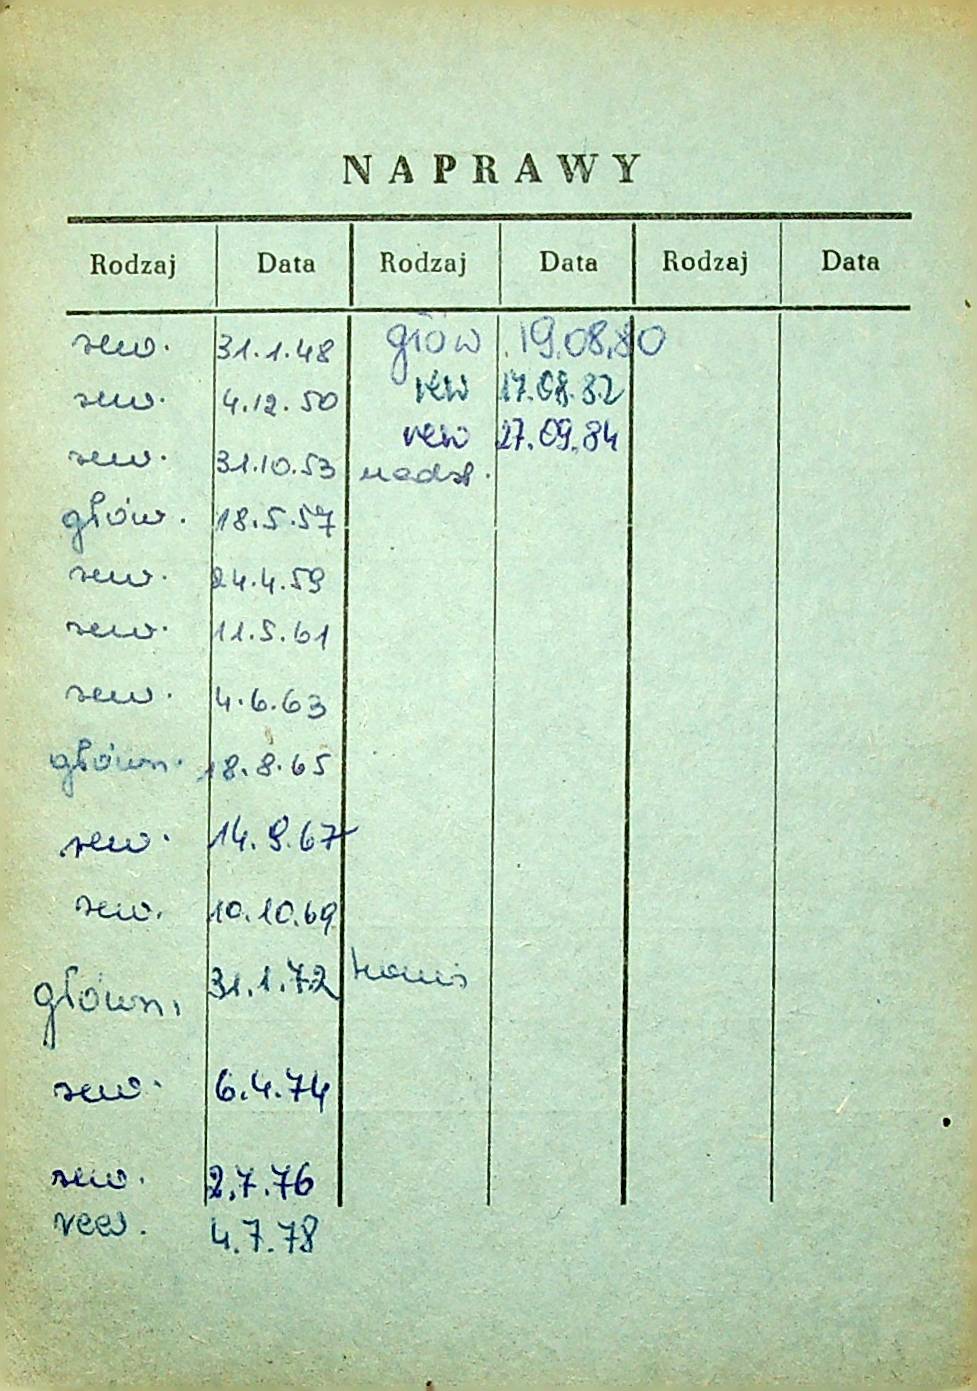 NAPRAWY
Rodzaj Data Rodzaj Data Rodzaj Data
rew. 31.1.48 głów 19.08.80
rew. 4.12.50 rew 17.08.82
rew. 31.10.53 rew 27.09.84
nadzł.
głów. 18.5.57
rew. 24.4.59
rew. 11.5.61
rew. 4.6.63
główn. 18.8.65
rew. 14.9.67
rew. 10.10.69
główn. 31.1.72
rew. 6.4.74
rew. 2.7.76
rew. 4.7.78